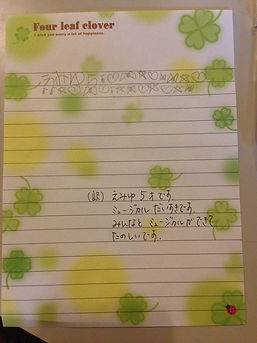 Four leaf clover
I wish you every a lot of happiness.
えみゆ5
(訳) えみゆ 5才です。
ミュージカル だいすきです。
みんなと ミュージカルができて
たのしいです。